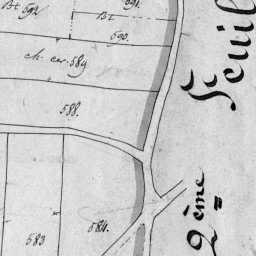 Bt 592
591.
Bt
590.
ch. car. 589
588.
583
584.
2ème
Feuil